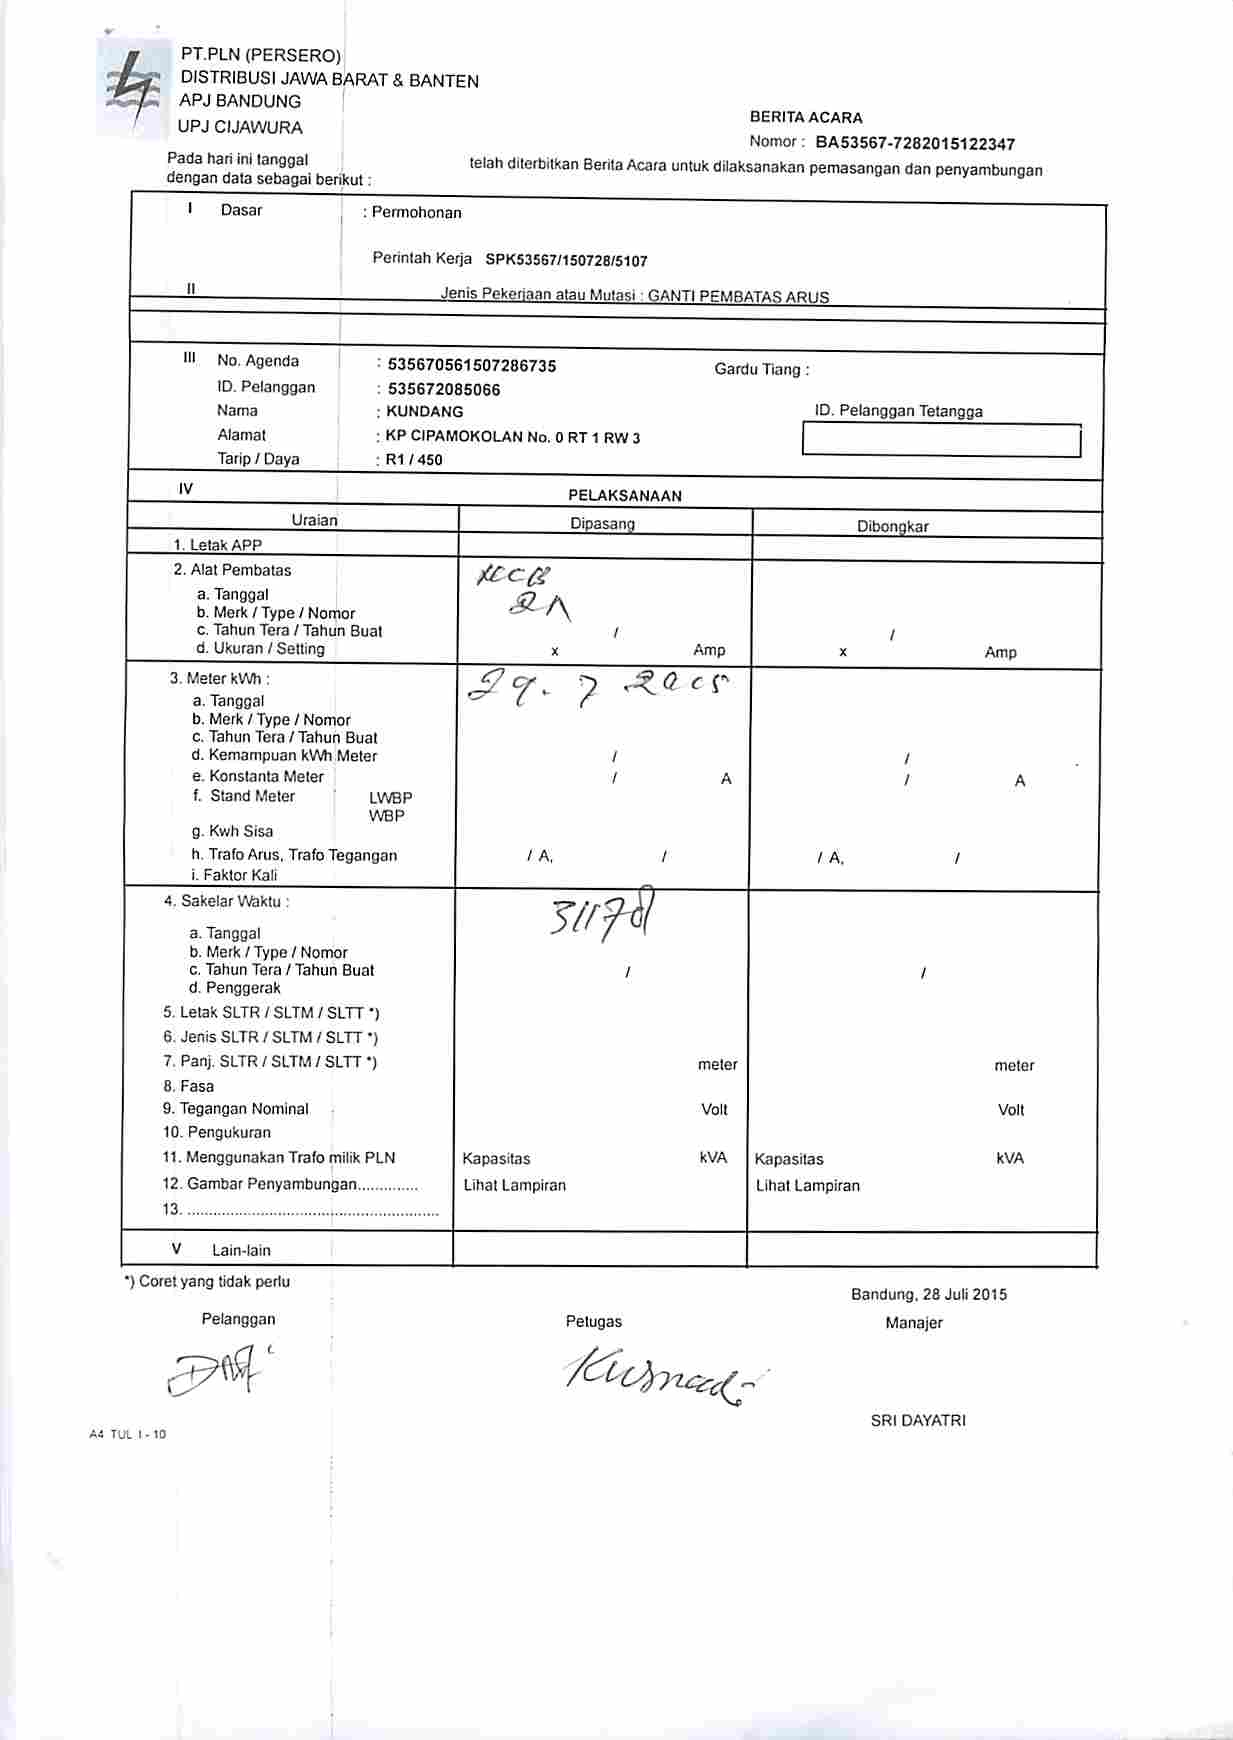 PT.PLN (PERSERO)
DISTRIBUSI JAWA BARAT & BANTEN
APJ BANDUNG
UPJ CIJAWURA
BERITA ACARA
Nomor : BA53567-7282015122347
Pada hari ini tanggal telah diterbitkan Berita Acara untuk dilaksanakan pemasangan dan penyambungan
dengan data sebagai berikut :
I Dasar : Permohonan
Perintah Kerja SPK53567/150728/5107
II Jenis Pekerjaan atau Mutasi : GANTI PEMBATAS ARUS
III No. Agenda : 535670561507286735 Gardu Tiang :
ID. Pelanggan : 535672085066
Nama : KUNDANG ID. Pelanggan Tetangga
Alamat : KP CIPAMOKOLAN No. 0 RT 1 RW 3
Tarip / Daya : R1 / 450
IV PELAKSANAAN
Uraian Dipasang Dibongkar
1. Letak APP
2. Alat Pembatas
a. Tanggal 2A
b. Merk / Type / Nomor
c. Tahun Tera / Tahun Buat / /
d. Ukuran / Setting x Amp x Amp
3. Meter kWh : 29. 7
a. Tanggal
b. Merk / Type / Nomor
c. Tahun Tera / Tahun Buat
d. Kemampuan kWh Meter / /
e. Konstanta Meter / A / A
f. Stand Meter LWBP
WBP
g. Kwh Sisa
h. Trafo Arus, Trafo Tegangan / A, / / A, /
i. Faktor Kali
4. Sakelar Waktu :
a. Tanggal
b. Merk / Type / Nomor
c. Tahun Tera / Tahun Buat / /
d. Penggerak
5. Letak SLTR / SLTM / SLTT *)
6. Jenis SLTR / SLTM / SLTT *)
7. Panj. SLTR / SLTM / SLTT *) meter meter
8. Fasa
9. Tegangan Nominal Volt Volt
10. Pengukuran
11. Menggunakan Trafo milik PLN Kapasitas kVA Kapasitas kVA
12. Gambar Penyambungan.............. Lihat Lampiran Lihat Lampiran
13. ..........................................................
V Lain-lain
*) Coret yang tidak perlu
Bandung, 28 Juli 2015
Pelanggan Petugas Manajer
Kusnadi
SRI DAYATRI
A4 TUL I - 10